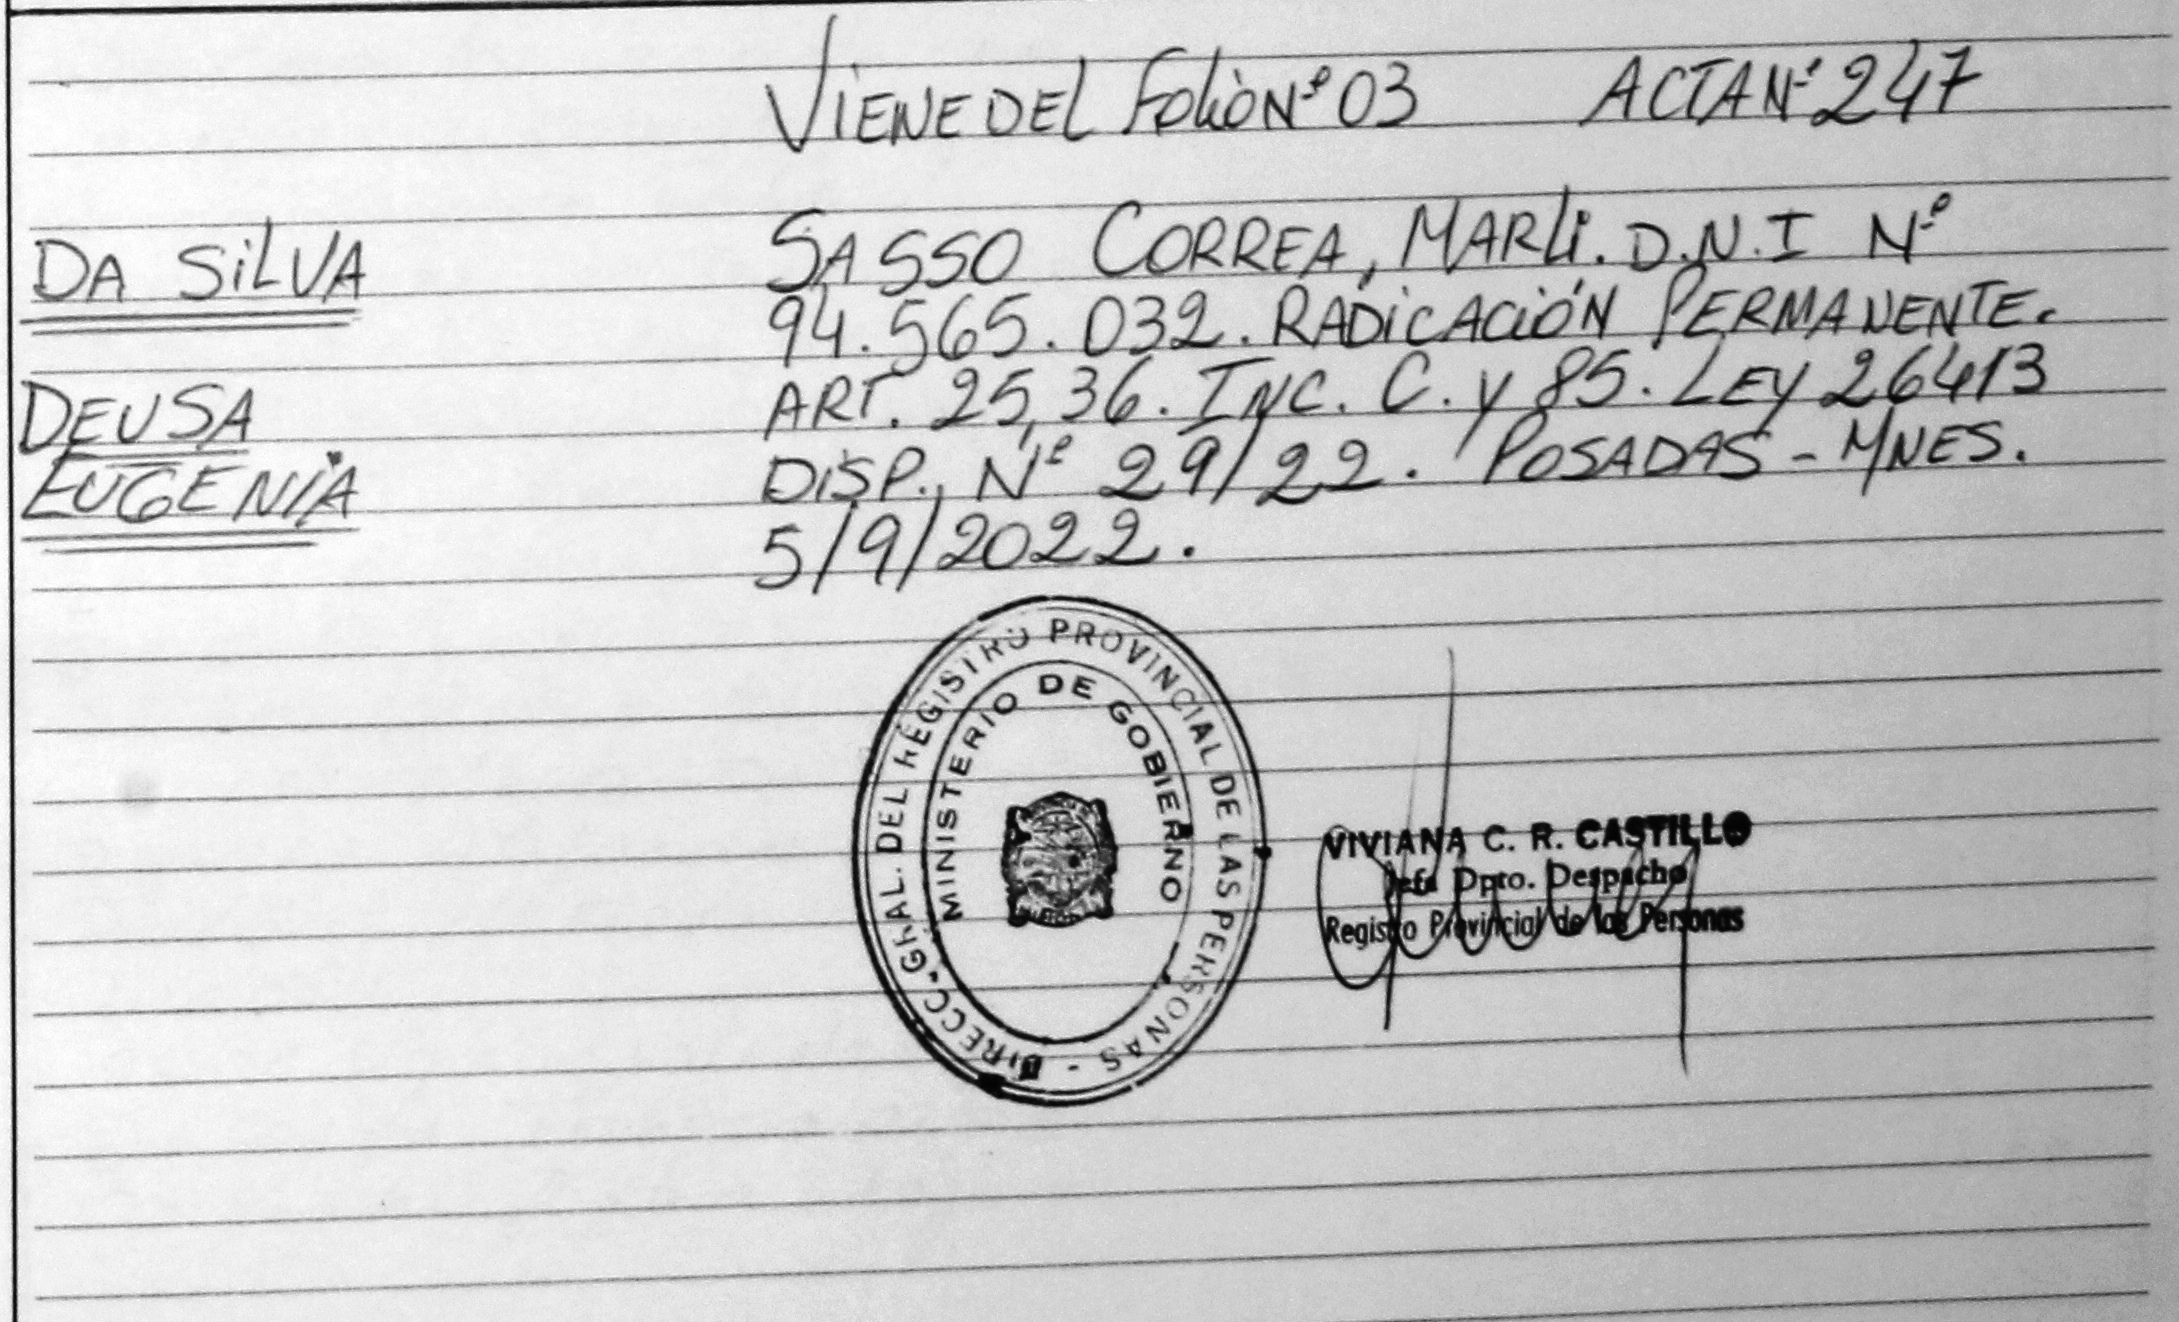 VIENE DEL Folio Nº 03 ACTA Nº 247
DA SILVA
DEUSA
EUGENIA
SASSO CORREA, MARLI. D.N.I Nº
94.565.032. RADICACIÓN PERMANENTE.
ART. 25, 36. INC. C. y 85. LEY 26413
DISP. Nº 29/22. POSADAS - MNES.
5/9/2022.
DIRECC. GRAL. DEL REGISTRO PROVINCIAL DE LAS PERSONAS -
MINISTERIO DE GOBIERNO
VIVIANA C. R. CASTILLO
Jefa Dpto. Despacho
Registro Provincial de las Personas